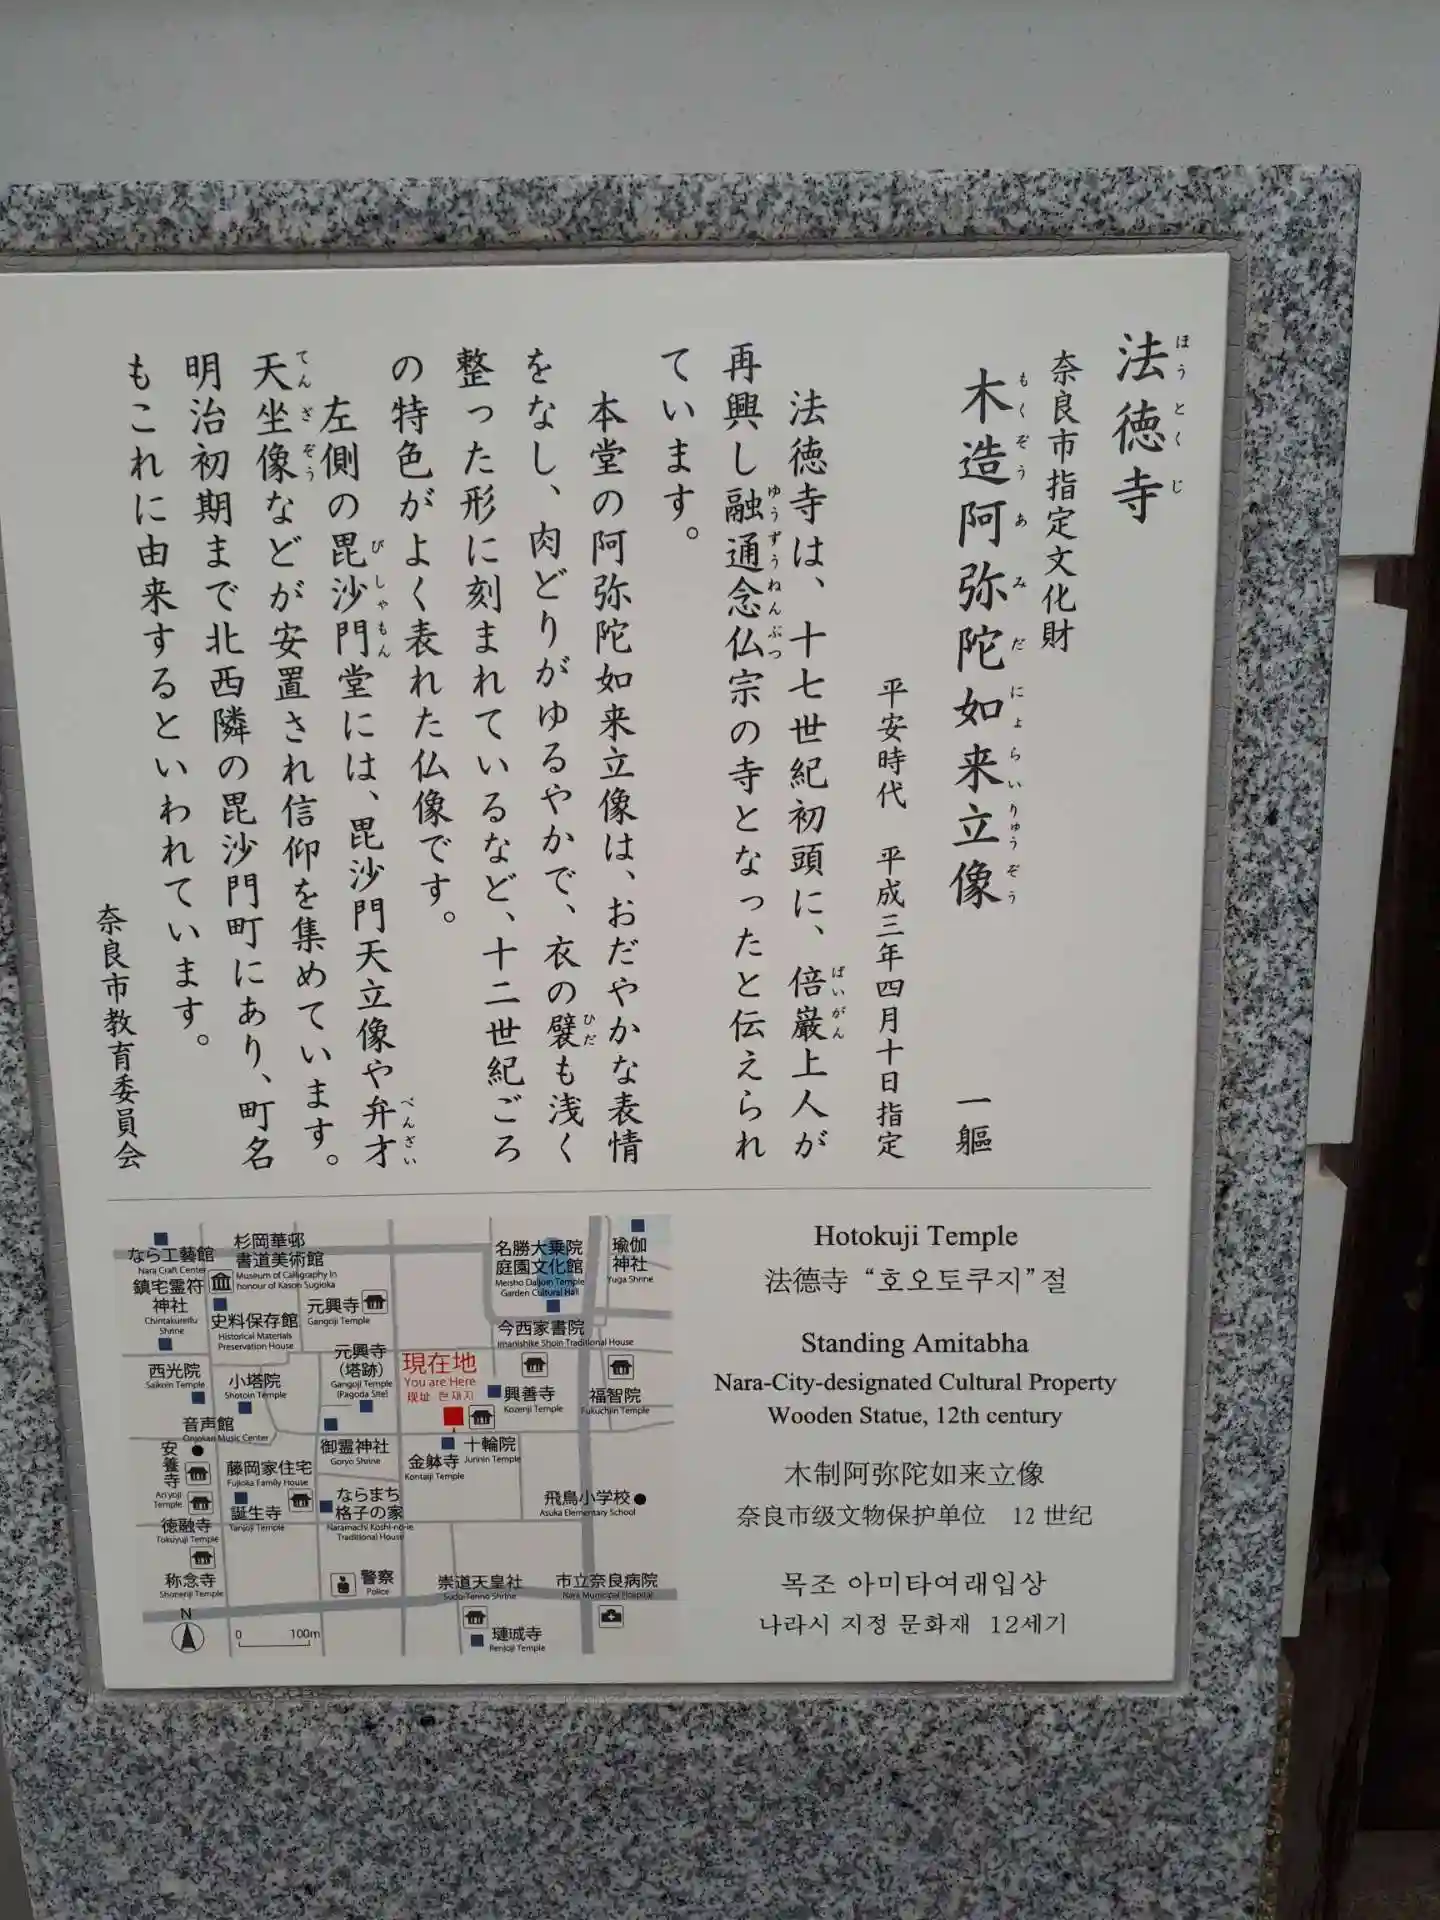 法徳寺
奈良市指定文化財
木造阿弥陀如来立像 一軀
平安時代 平成三年四月十日指定
法徳寺は、十七世紀初頭に、倍巌上人が
再興し融通念仏宗の寺となったと伝えられ
ています。
本堂の阿弥陀如来立像は、おだやかな表情
をなし、肉どりがゆるやかで、衣の襞も浅く
整った形に刻まれているなど、十二世紀ごろ
の特色がよく表れた仏像です。
左側の毘沙門堂には、毘沙門天立像や弁才
天坐像などが安置され信仰を集めています。
明治初期まで北西隣の毘沙門町にあり、町名
もこれに由来するといわれています。
奈良市教育委員会
なら工藝館
Nara Craft Center
杉岡華邨
書道美術館
Museum of Calligraphy in
honour of Kason Sugioka
鎮宅霊符
神社
Chintakureifu
Shrine
史料保存館
Historical Materials
Preservation House
元興寺
Gangoji Temple
名勝大乗院
庭園文化館
Meisho Daijoin Temple
Garden Cultural Hall
瑜伽
神社
Yuga Shrine
今西家書院
Imanishike Shoin Traditional House
西光院
Saikoin Temple
小塔院
Shotoin Temple
元興寺
(塔跡)
Gangoji Temple
(Pagoda Site)
現在地
You are Here
现址 현재지
興善寺
Kozenji Temple
福智院
Fukuchiin Temple
音声館
Onjokan Music Center
御霊神社
Goryo Shrine
金躰寺
Kontaiji Temple
十輪院
Jurinin Temple
安養寺
Anyoji
Temple
藤岡家住宅
Fujioka Family House
誕生寺
Tanjoji Temple
ならまち
格子の家
Naramachi Koshi-no-ie
Traditional House
飛鳥小学校
Asuka Elementary School
徳融寺
Tokuyuji Temple
称念寺
Shonenji Temple
警察
Police
崇道天皇社
Sudo-Tenno Shrine
市立奈良病院
Nara Municipal Hospital
璉珹寺
Renjoji Temple
N
0 100m
Hotokuji Temple
法德寺 “호오토쿠지”절
Standing Amitabha
Nara-City-designated Cultural Property
Wooden Statue, 12th century
木制阿弥陀如来立像
奈良市级文物保护单位 12世纪
목조 아미타여래입상
나라시 지정 문화재 12세기